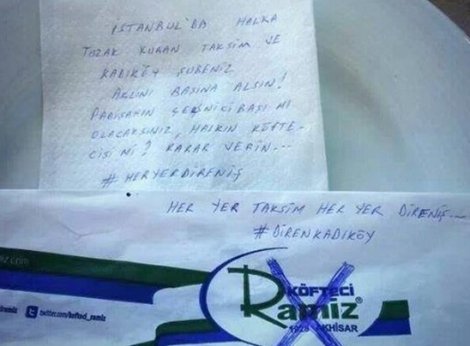 İSTANBUL'DA HALKA
TUZAK KURAN TAKSİM VE
KADIKÖY ŞUBENİZ
AKLINI BAŞINA ALSIN!
PADİŞAHIN ÇEŞNİCİBAŞI MI
OLACAKSINIZ, HALKIN KÖFTE-
CİSİ Mİ? KARAR VERİN...
#HERYERDİRENİŞ
HER YER TAKSİM HER YER DİRENİŞ...
#DİRENKADIKÖY
iz.com
twitter.com/kofteci_ramiz
KÖFTECİ
Ramiz®
1928 AKHİSAR